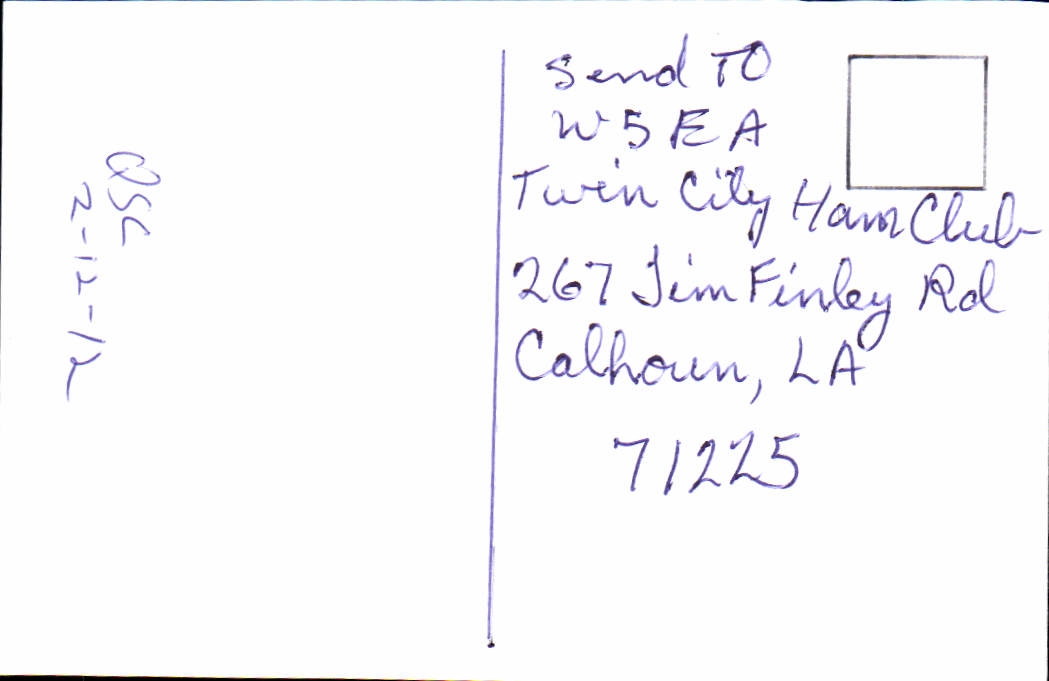 Send TO
W5EA
Twin City Ham Club
267 Jim Finley Rd
Calhoun, LA
71225
QSL